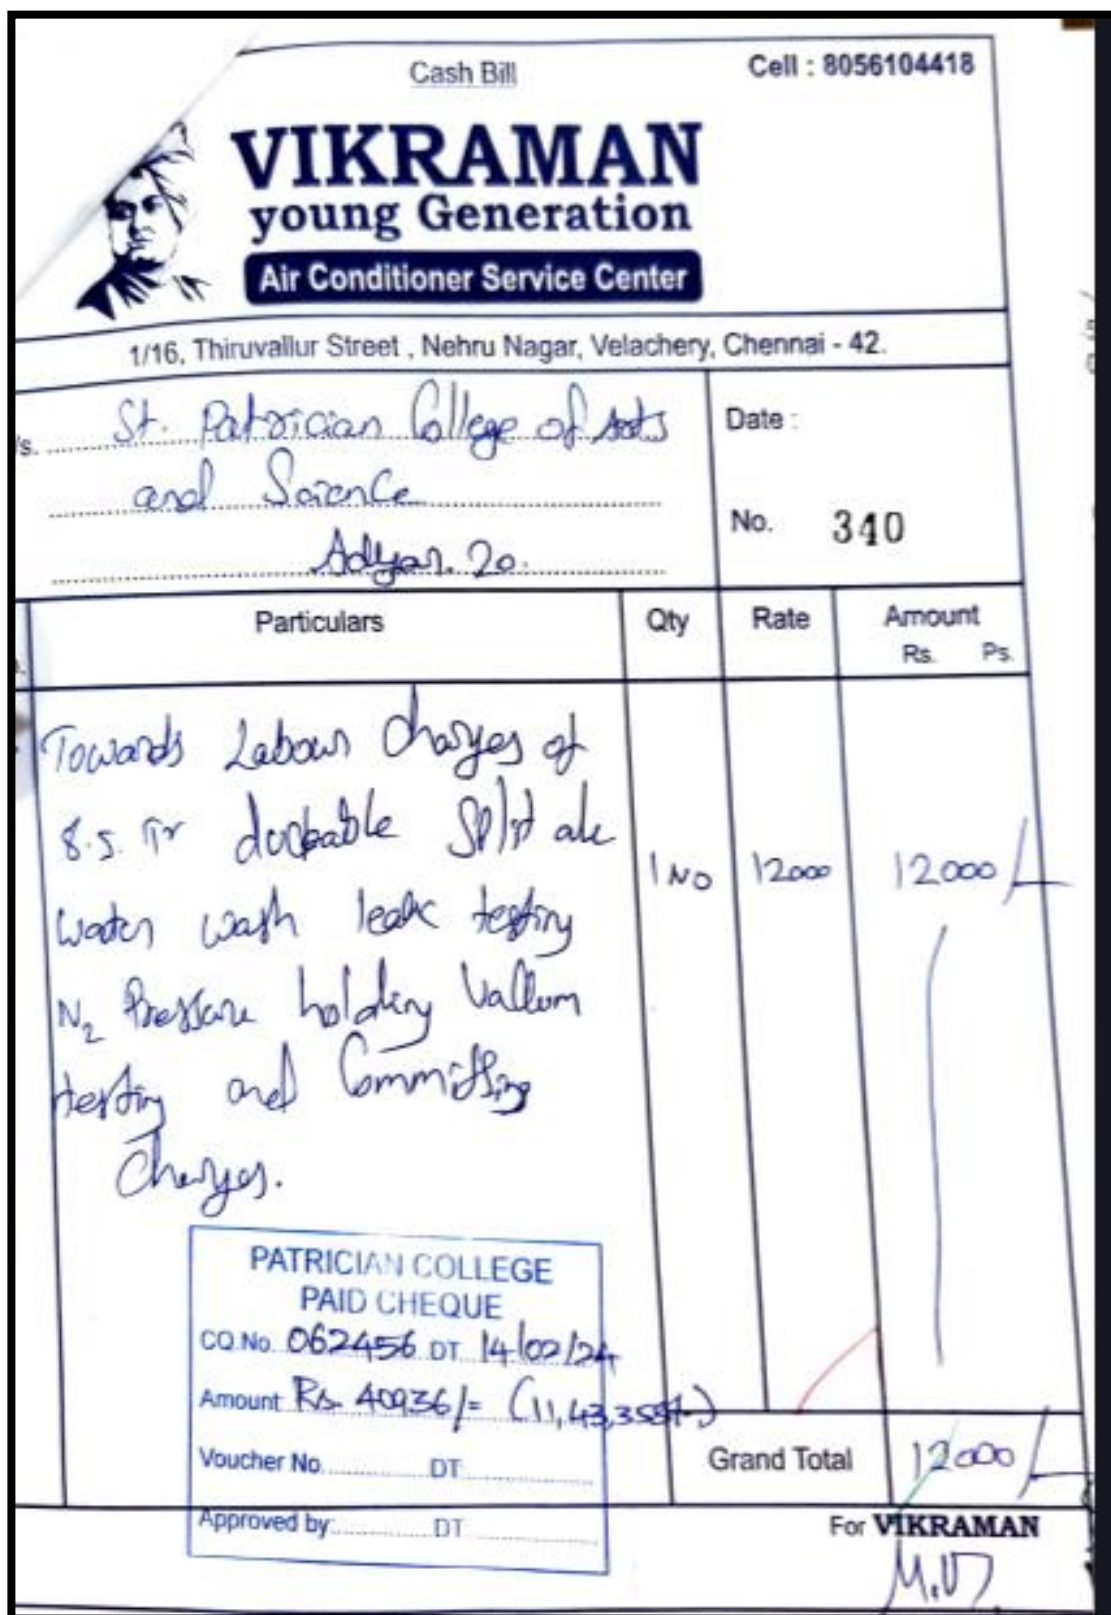 Cash Bill
Cell : 8056104418
VIKRAMAN
young Generation
Air Conditioner Service Center
1/16, Thiruvallur Street , Nehru Nagar, Velachery, Chennai - 42.
/s. St. Patrician College of Arts
and Science
Adyar. 20.
Date :
No. 340
Particulars Qty Rate Amount
Rs. Ps.
Towards Labour Charges of
8.5. Tr ductable Split a/c
water wash leak testing
1 No 12000 12000/-
N2 Pressure holding Vallum
testing and Commitsing
Charges.
PATRICIAN COLLEGE
PAID CHEQUE
CQ.No. 062456 DT 14/02/24
Amount Rs. 40936/= (11,43,358/-)
Voucher No. DT
Approved by: DT
Grand Total 12000/-
For VIKRAMAN